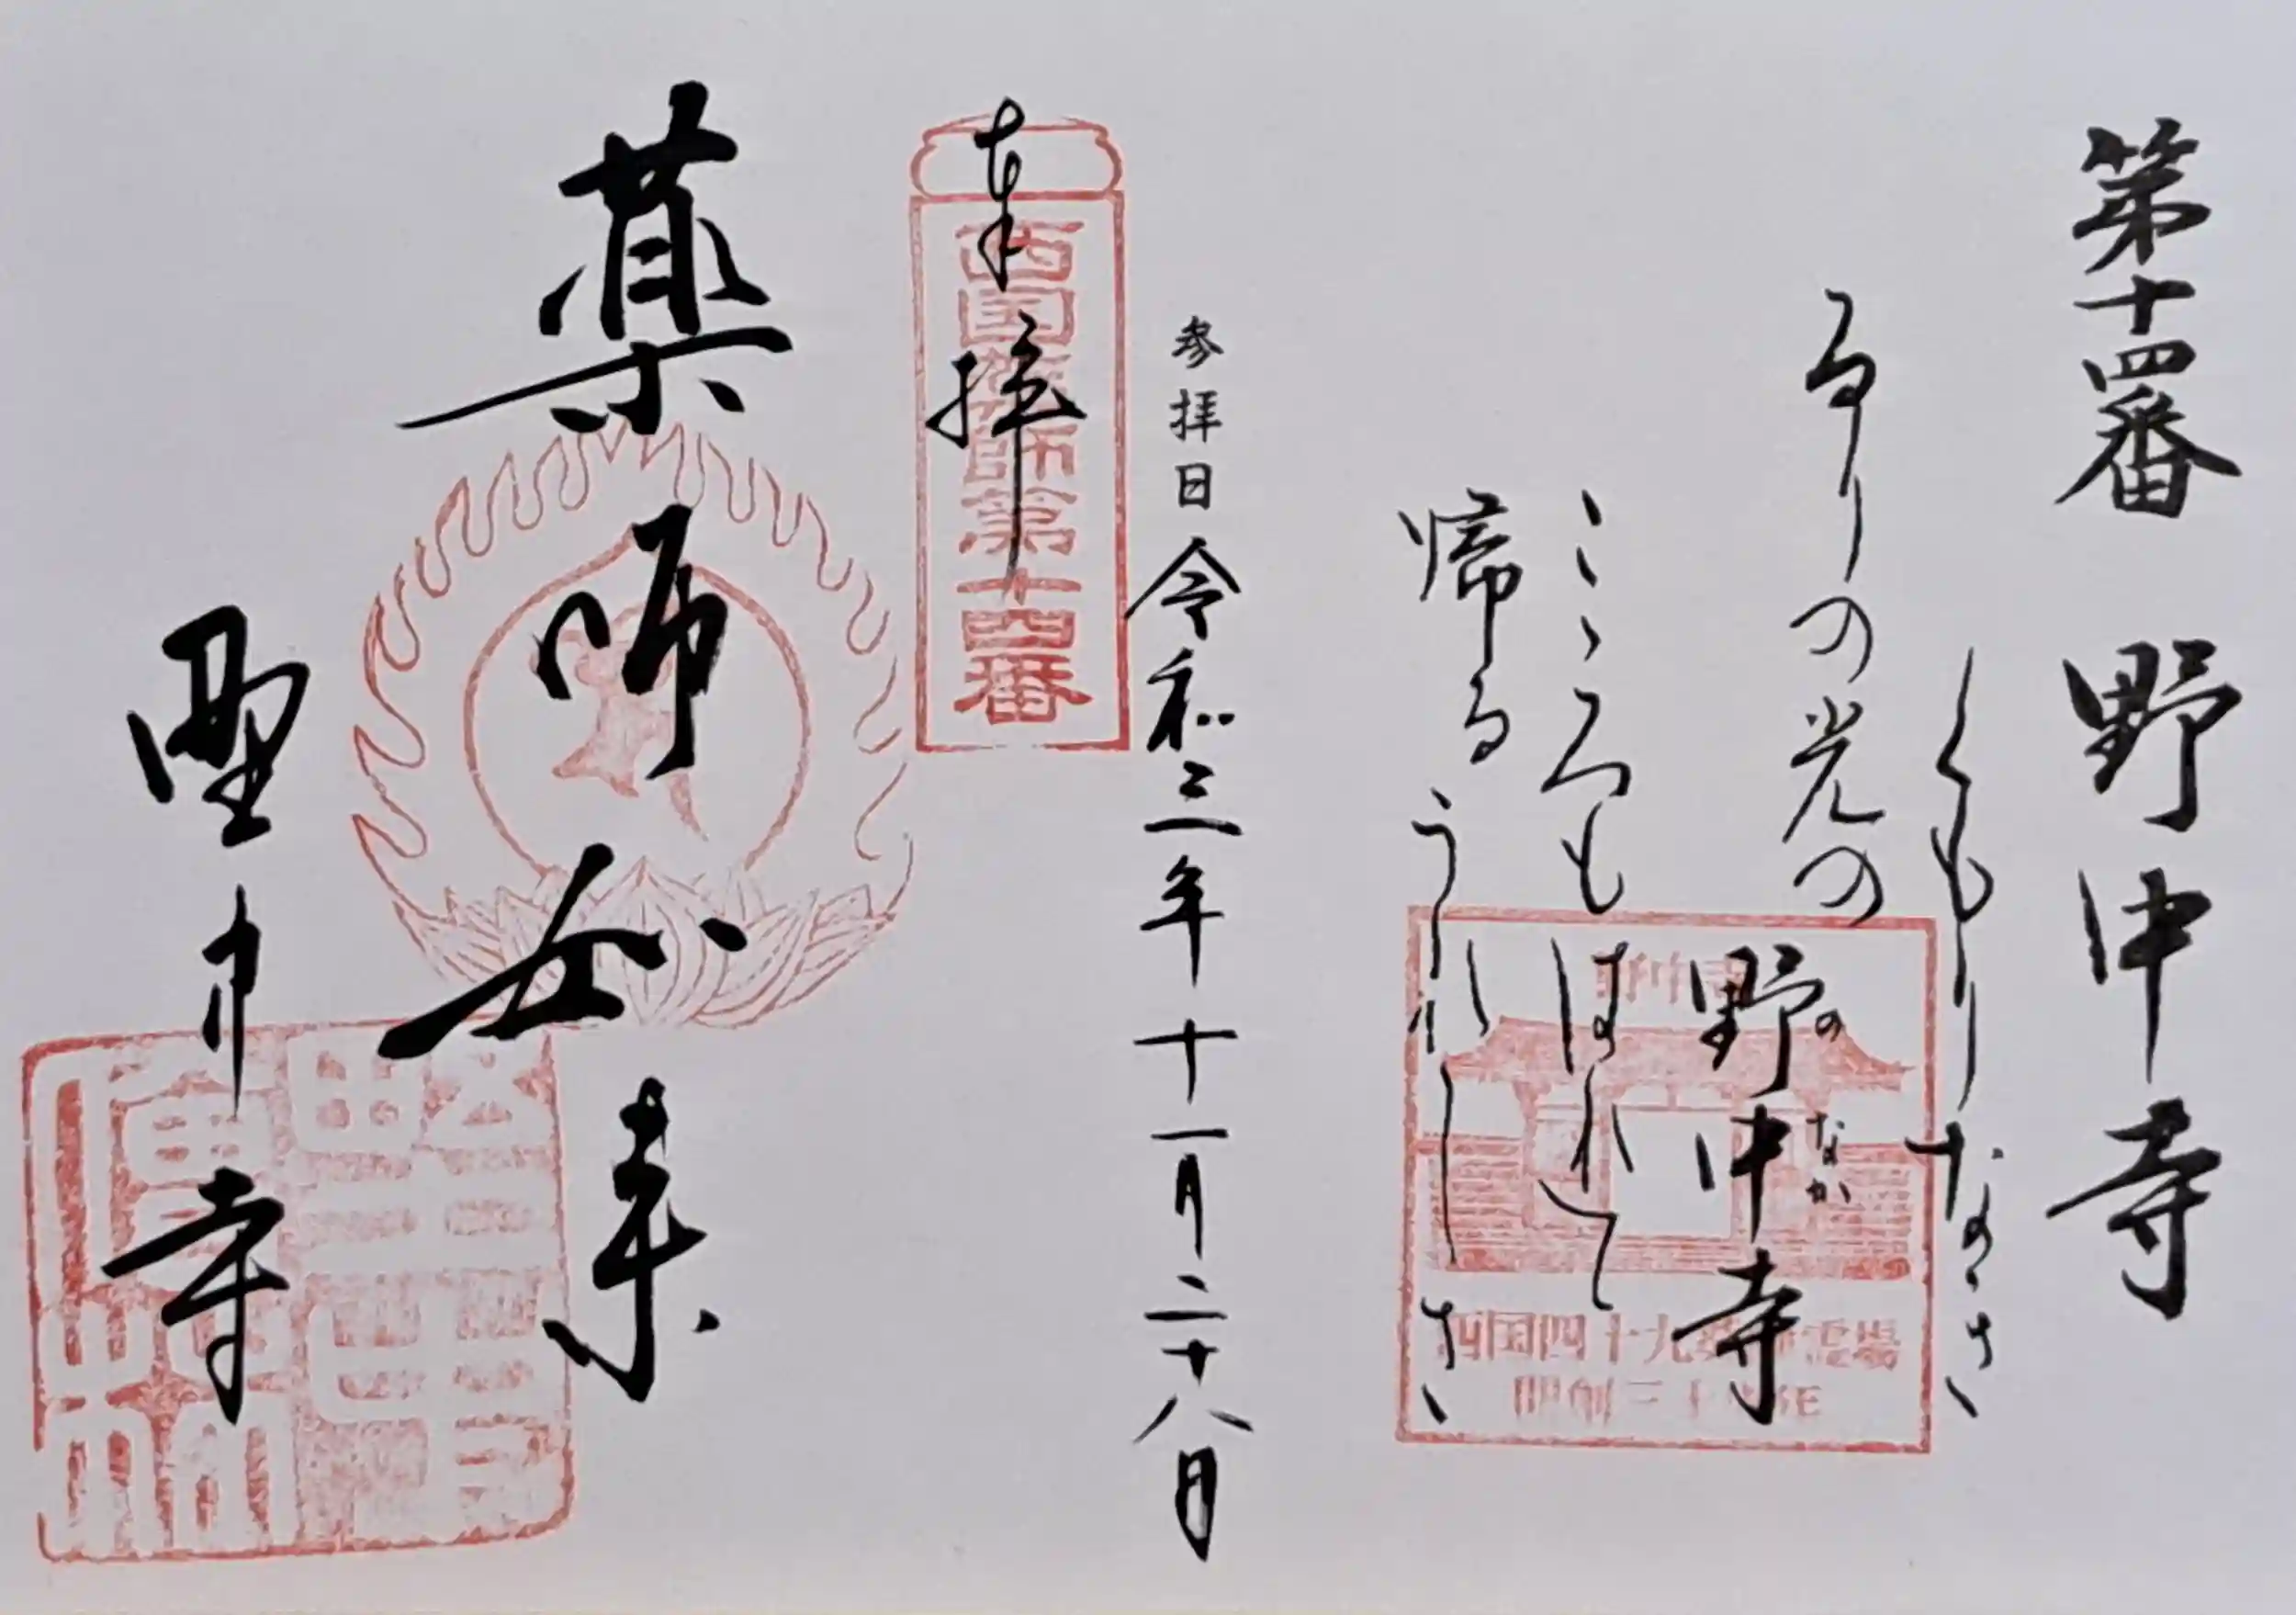 第十四番 野中寺
くもりなき
るりの光の
野中寺
のなか
こゝろもはれて
帰るうれしさ
野中寺
西国四十九薬師霊場
参拝日 令和三年十一月二十八日
奉拝
西国薬師第十四番
薬師如来
野中寺